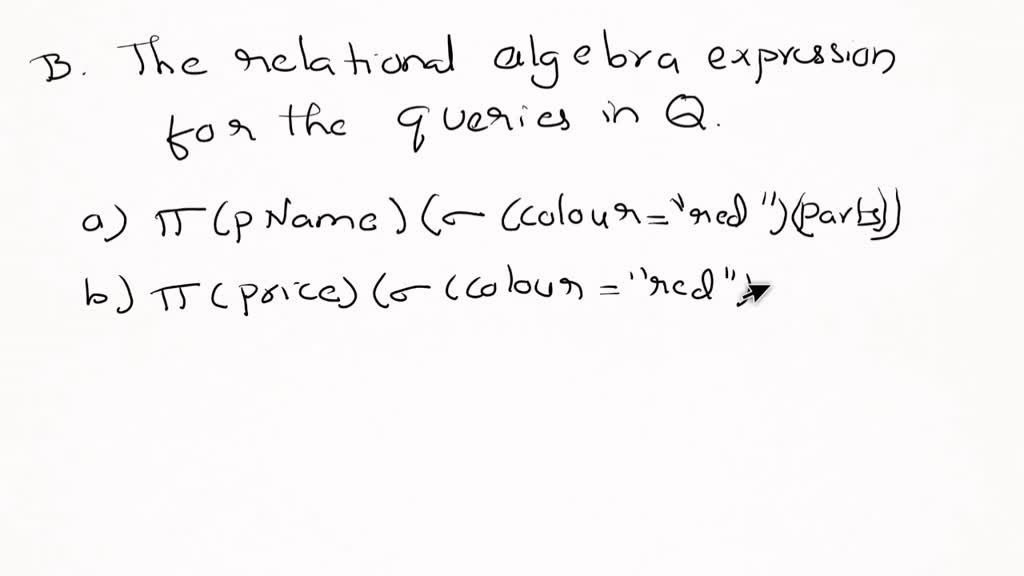 B. The relational algebra expression
for the queries in Q.
a) π (pName) (σ (colour = "red") (parts))
b) π (price) (σ (colour = "red")